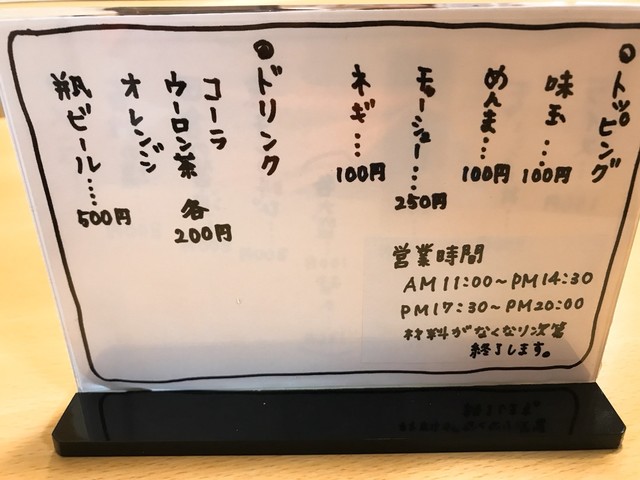 ●トッピング
味玉…100円
めんま…100円
チャーシュー…250円
ネギ…100円
●ドリンク
コーラ
ウーロン茶 各200円
オレンジ
瓶ビール…500円
営業時間
AM11:00～PM14:30
PM17:30～PM20:00
材料がなくなり次第
終了します。